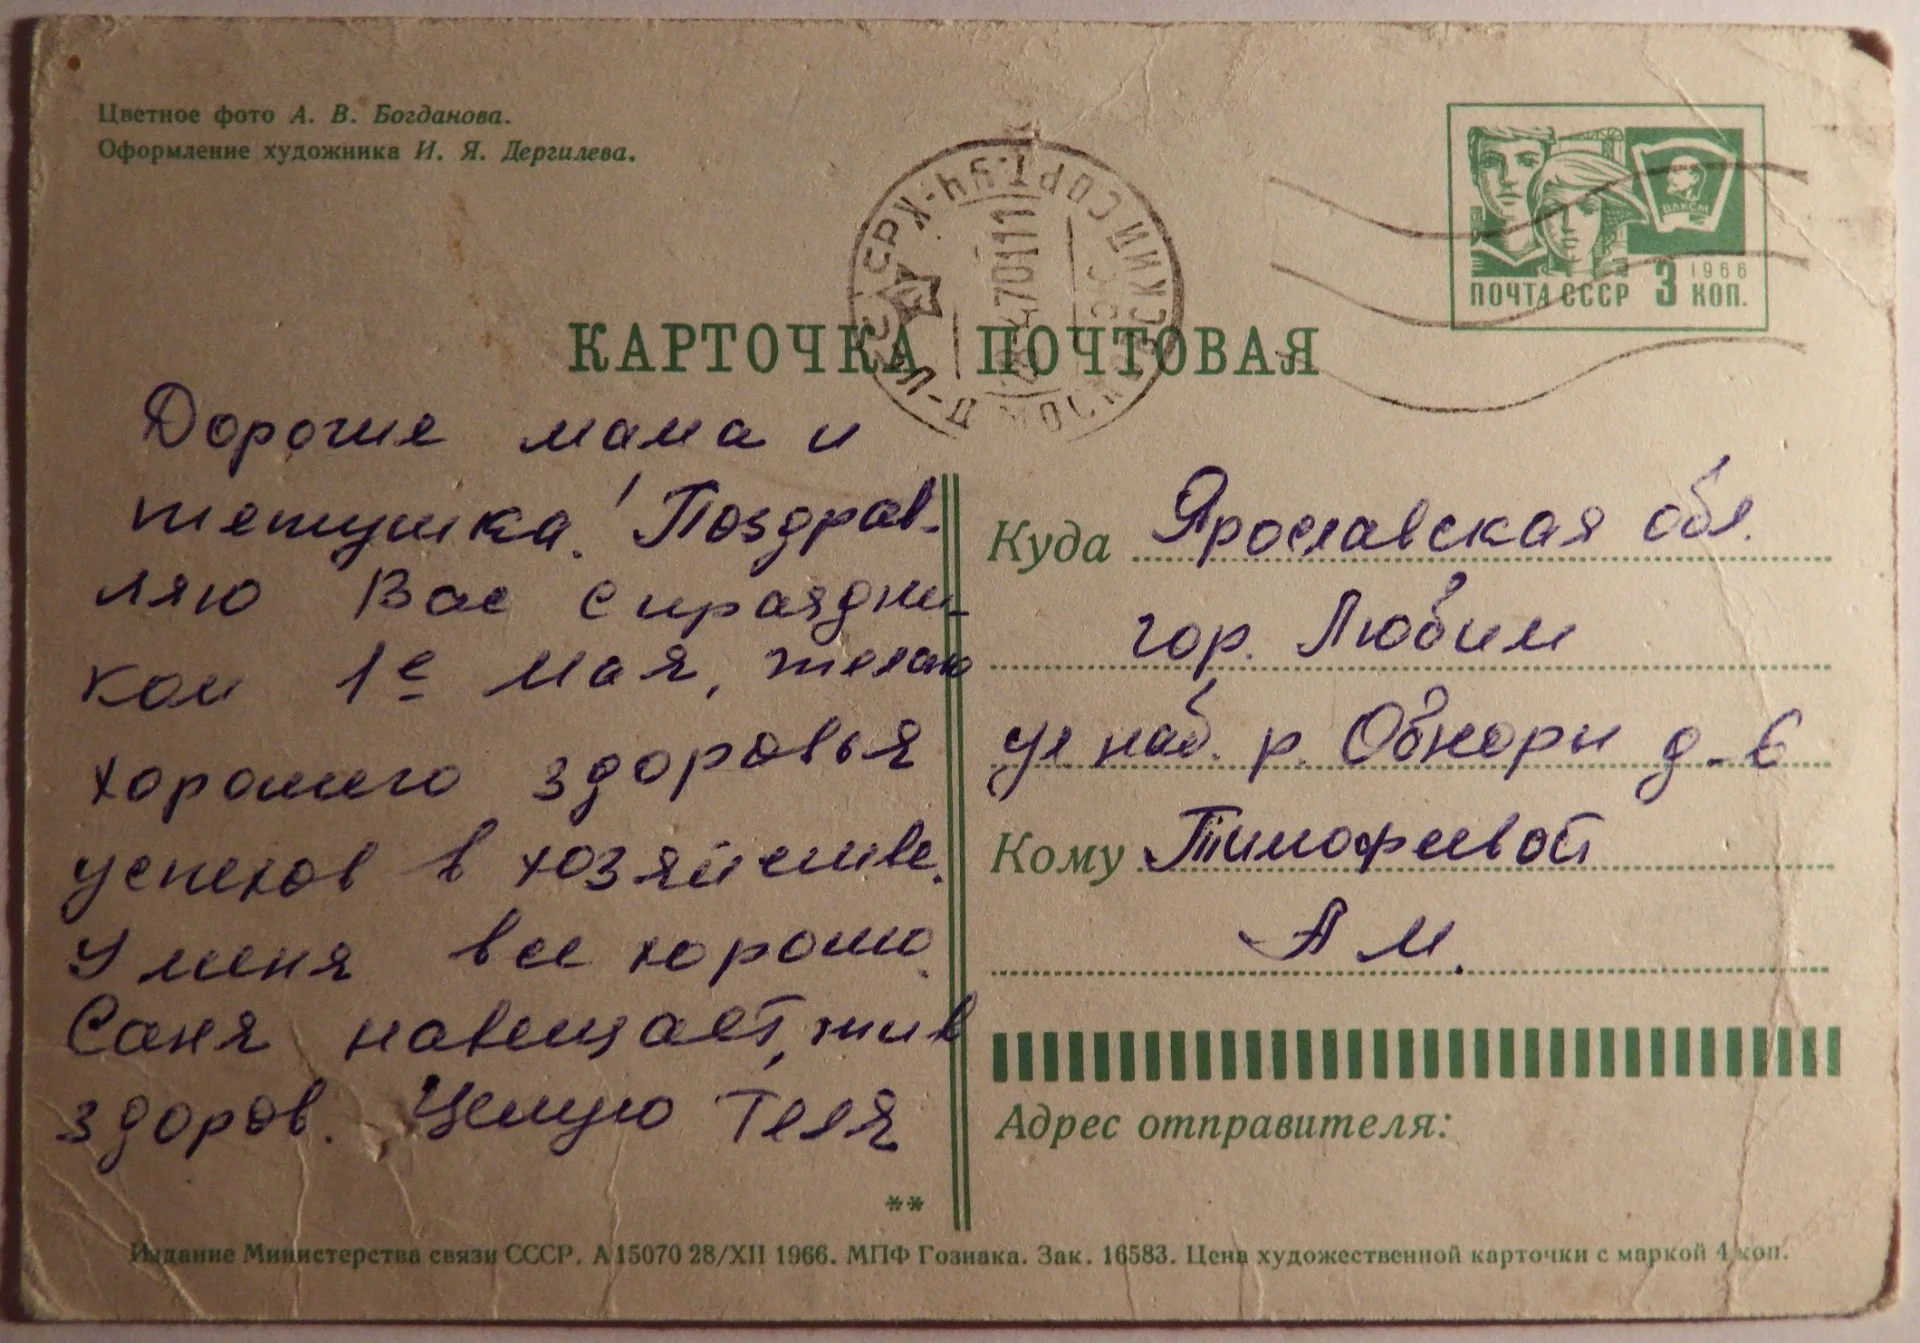 Цветное фото А. В. Богданова.
Оформление художника И. Я. Дергилева.
ВЛКСМ
1966
ПОЧТА СССР 3 КОП.
КАРТОЧКА ПОЧТОВАЯ
Дорогие мама и
тетушка! Поздрав-
ляю Вас с праздни-
ком 1е Мая, желаю
хорошего здоровья
успехов в хозяйстве.
У меня все хорошо.
Саня навещает, жив
здоров. Целую Геля
Куда Ярославская обл.
гор. Любим
ул наб. р. Обноры д-6
Кому Тимофеевой
А М.
Адрес отправителя:
**
Издание Министерства связи СССР. А 15070 28/XII 1966. МПФ Гознака. Зак. 16583. Цена художественной карточки с маркой 4 коп.